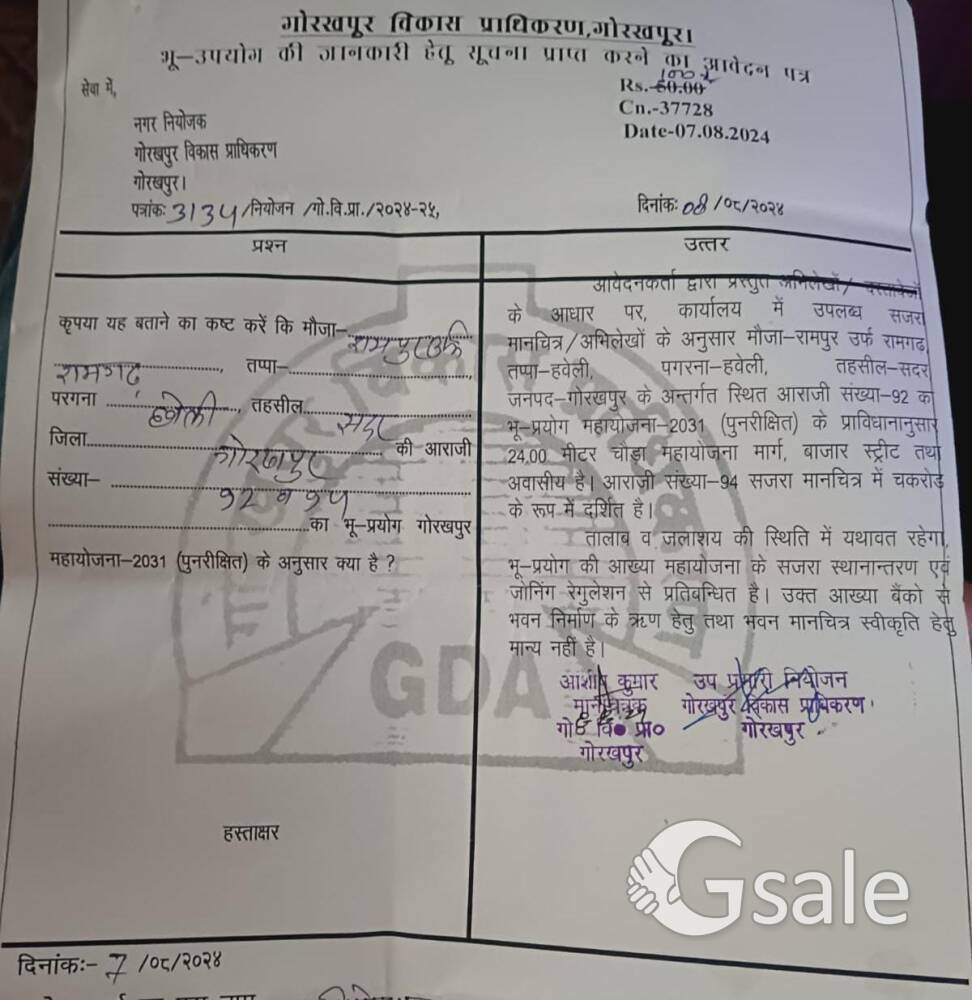 गोरखपुर विकास प्राधिकरण,गोरखपुर।
भू–उपयोग की जानकारी हेतु सूचना प्राप्त करने का आवेदन पत्र
सेवा में,
100
Rs.-50.00
Cn.-37728
Date-07.08.2024
नगर नियोजक
गोरखपुर विकास प्राधिकरण
गोरखपुर।
पत्रांकः 3134/नियोजन /गो.वि.प्रा./२०२४-२५,
दिनांकः 08/०८/२०२४
प्रश्न
उत्तर
कृपया यह बताने का कष्ट करें कि मौजा– रामपुर उर्फ
रामगढ़, तप्पा–
परगना हवेली, तहसील सदर
जिला गोरखपुर की आराजी
संख्या– ९२ व ९४
का भू–प्रयोग गोरखपुर
महायोजना–2031 (पुनरीक्षित) के अनुसार क्या है ?
आवेदनकर्ता द्वारा प्रस्तुत अभिलेखों/ दस्तावेजों
के आधार पर, कार्यालय में उपलब्ध सजरा
मानचित्र/अभिलेखों के अनुसार मौजा–रामपुर उर्फ रामगढ़,
तप्पा–हवेली, पगरना–हवेली, तहसील–सदर
जनपद–गोरखपुर के अन्तर्गत स्थित आराजी संख्या–92 का
भू–प्रयोग महायोजना–2031 (पुनरीक्षित) के प्राविधानानुसार
24.00 मीटर चौड़ा महायोजना मार्ग, बाजार स्ट्रीट तथा
अवासीय है। आराजी संख्या–94 सजरा मानचित्र में चकरोड
के रूप में दर्शित है।
तालाब व जलाशय की स्थिति में यथावत रहेगा,
भू–प्रयोग की आख्या महायोजना के सजरा स्थानान्तरण एवं
जोनिंग रेगुलेशन से प्रतिबन्धित है। उक्त आख्या बैंको से
भवन निर्माण के ऋण हेतु तथा भवन मानचित्र स्वीकृति हेतु
मान्य नहीं है।
GDA
आशीष कुमार
मानचित्रक
गो० वि० प्रा०
गोरखपुर
उप प्रभारी नियोजन
गोरखपुर विकास प्राधिकरण
गोरखपुर
हस्ताक्षर
Gsale
दिनांकः– 7 /०८/२०२४